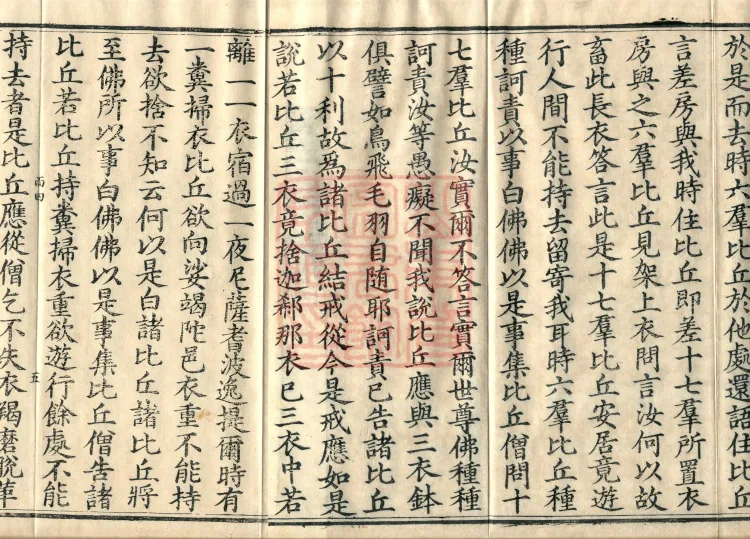 於是而去時六羣比丘於他處還語住比丘
言差房與我時住比丘即差十七羣所置衣
房與之六羣比丘見架上衣問言汝何以故
畜此長衣答言此是十七羣比丘安居竟遊
行人間不能持去留寄我耳時六羣比丘種
種訶責以事白佛佛以是事集比丘僧問十
七羣比丘汝實爾不答言實爾世尊佛種種
訶責汝等愚癡不聞我說比丘應與三衣鉢
俱譬如鳥飛毛羽自随耶訶責已告諸比丘
以十利故為諸比丘結戒從今是戒應如是
說若比丘三衣竟捨迦絺那衣已三衣中若
離一一衣宿過一夜尼薩耆波逸提爾時有
一糞掃衣比丘欲向娑竭陀邑衣重不能持
去欲捨不知云何以是白諸比丘諸比丘將
至佛所以事白佛佛以是事集比丘僧告諸
比丘若比丘持糞掃衣重欲遊行餘處不能
雨田 五
持去者是比丘應從僧乞不失衣羯磨脫革